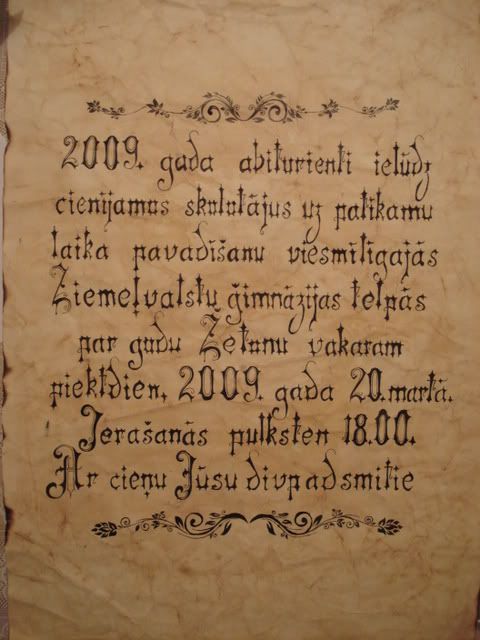 2009. gada abiturienti ielūdz
cienijamos skolotājus uz patikamu
laika pavadišanu viesmiligajās
Ziemeļvalstu ģimnāzijas telpās
par godu Žetonu vakaram
piektdien, 2009. gada 20.martā.
Ierašanās pulksten 18.00.
Ar cieņu Jūsu divpadsmitie